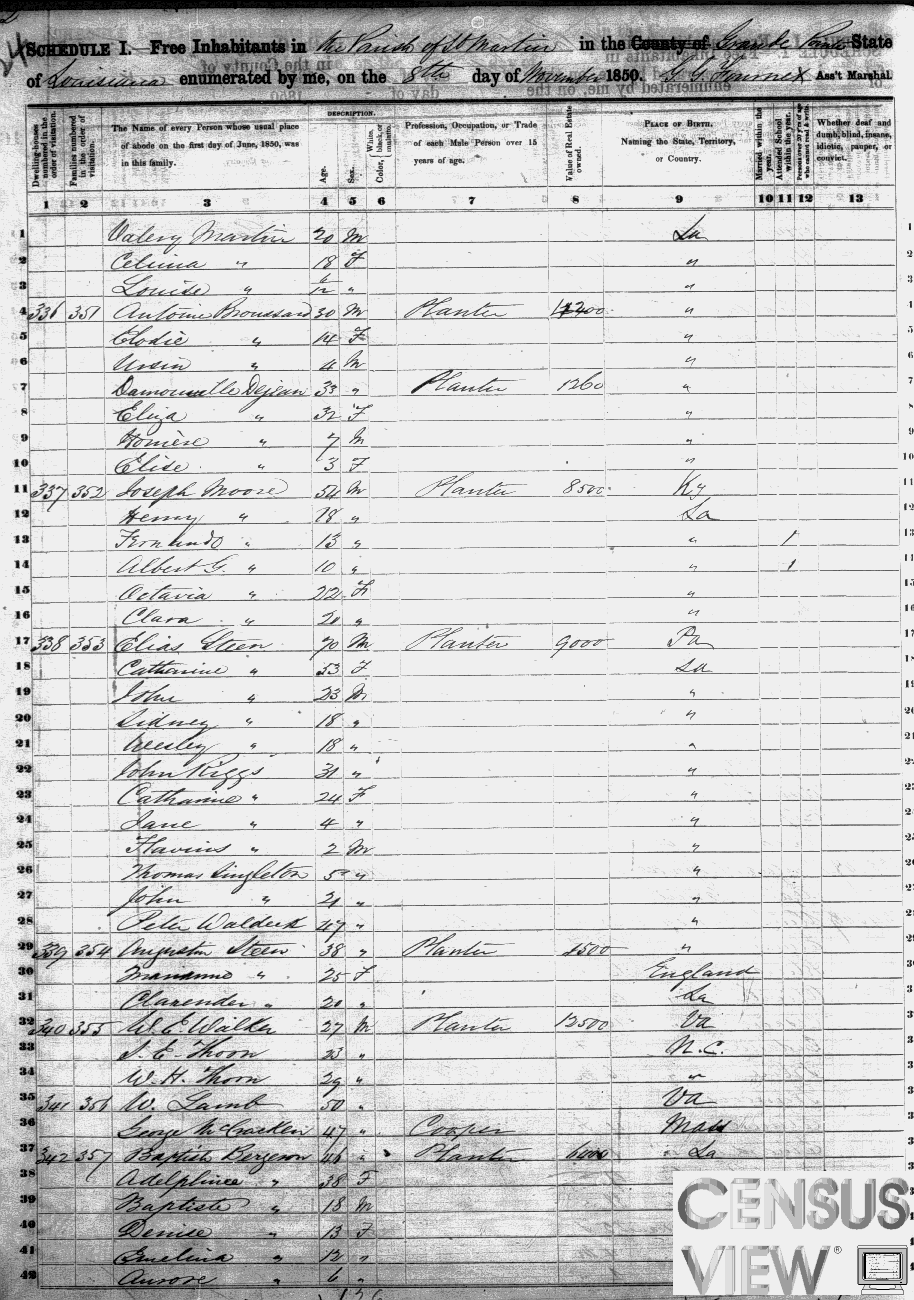 SCHEDULE I. Free Inhabitants in the Parish of St Martin in the County of Grande Pointe State
of Louisiana enumerated by me, on the 8th day of November 1850. Ass't Marshal.
DESCRIPTION.
Dwelling-houses numbered in the order of visitation.
Families numbered in the order of visitation.
The Name of every Person whose usual place of abode on the first day of June, 1850, was in this family.
Age.
Sex.
Color, White, black, or mulatto.
Profession, Occupation, or Trade of each Male Person over 15 years of age.
Value of Real Estate owned.
PLACE OF BIRTH. Naming the State, Territory, or Country.
Married within the year.
Attended School within the year.
Persons over 20 y'rs of age who cannot read & write.
Whether deaf and dumb, blind, insane, idiotic, pauper, or convict.
1 2 3 4 5 6 7 8 9 10 11 12 13
1 Valery Martin 20 M La 1
2 Celima " 18 F "
3 Louise " 6/12 " "
4 336 351 Antoine Broussard 30 M Planter "
5 Elodie " 14 F "
6 Ursin " 4 M "
7 Damonville Dejean 33 " Planter 1260 "
8 Eliza " 32 F "
9 Homère " 7 M "
10 Elise " 3 F "
11 337 352 Joseph Moore 54 M Planter 8500 Ky
12 Henry " 18 " La
13 Fernando " 13 " " 1
14 Albert G. " 10 " " 1
15 Octavia " 22 F "
16 Clara " 20 " "
17 338 353 Elias Steen 70 M Planter 9000 Pa
18 Catherine " 53 F La
19 John " 23 M "
20 Sidney " 18 " "
21 Wesley " 18 " "
22 John Riggs 31 " "
23 Catharine " 24 F "
24 Jane " 4 " "
25 Flavius " 2 M "
26 Thomas Singleton 5 " "
27 John " 21 " "
28 Peter Waldeck 47 " "
29 339 354 Augustin Steen 38 " Planter "
30 Marianne " 25 F England
31 Clarender " 20 " La
32 340 355 W. E. Walker 27 M Planter 12500 Va
33 S. E. Thoon 23 " N.C.
34 W. H. Thoon 29 " "
35 341 356 W. Lamb 50 " Va
36 George McCracklin 47 " Cooper Mass
37 342 357 Baptiste Bergeron 46 " Planter 6000 La
38 Adelphinee " 38 F
39 Baptiste " 18 M
40 Denise " 13 F
41 Emelina " 12 "
42 Aurore " 6 "
CENSUS
VIEW®